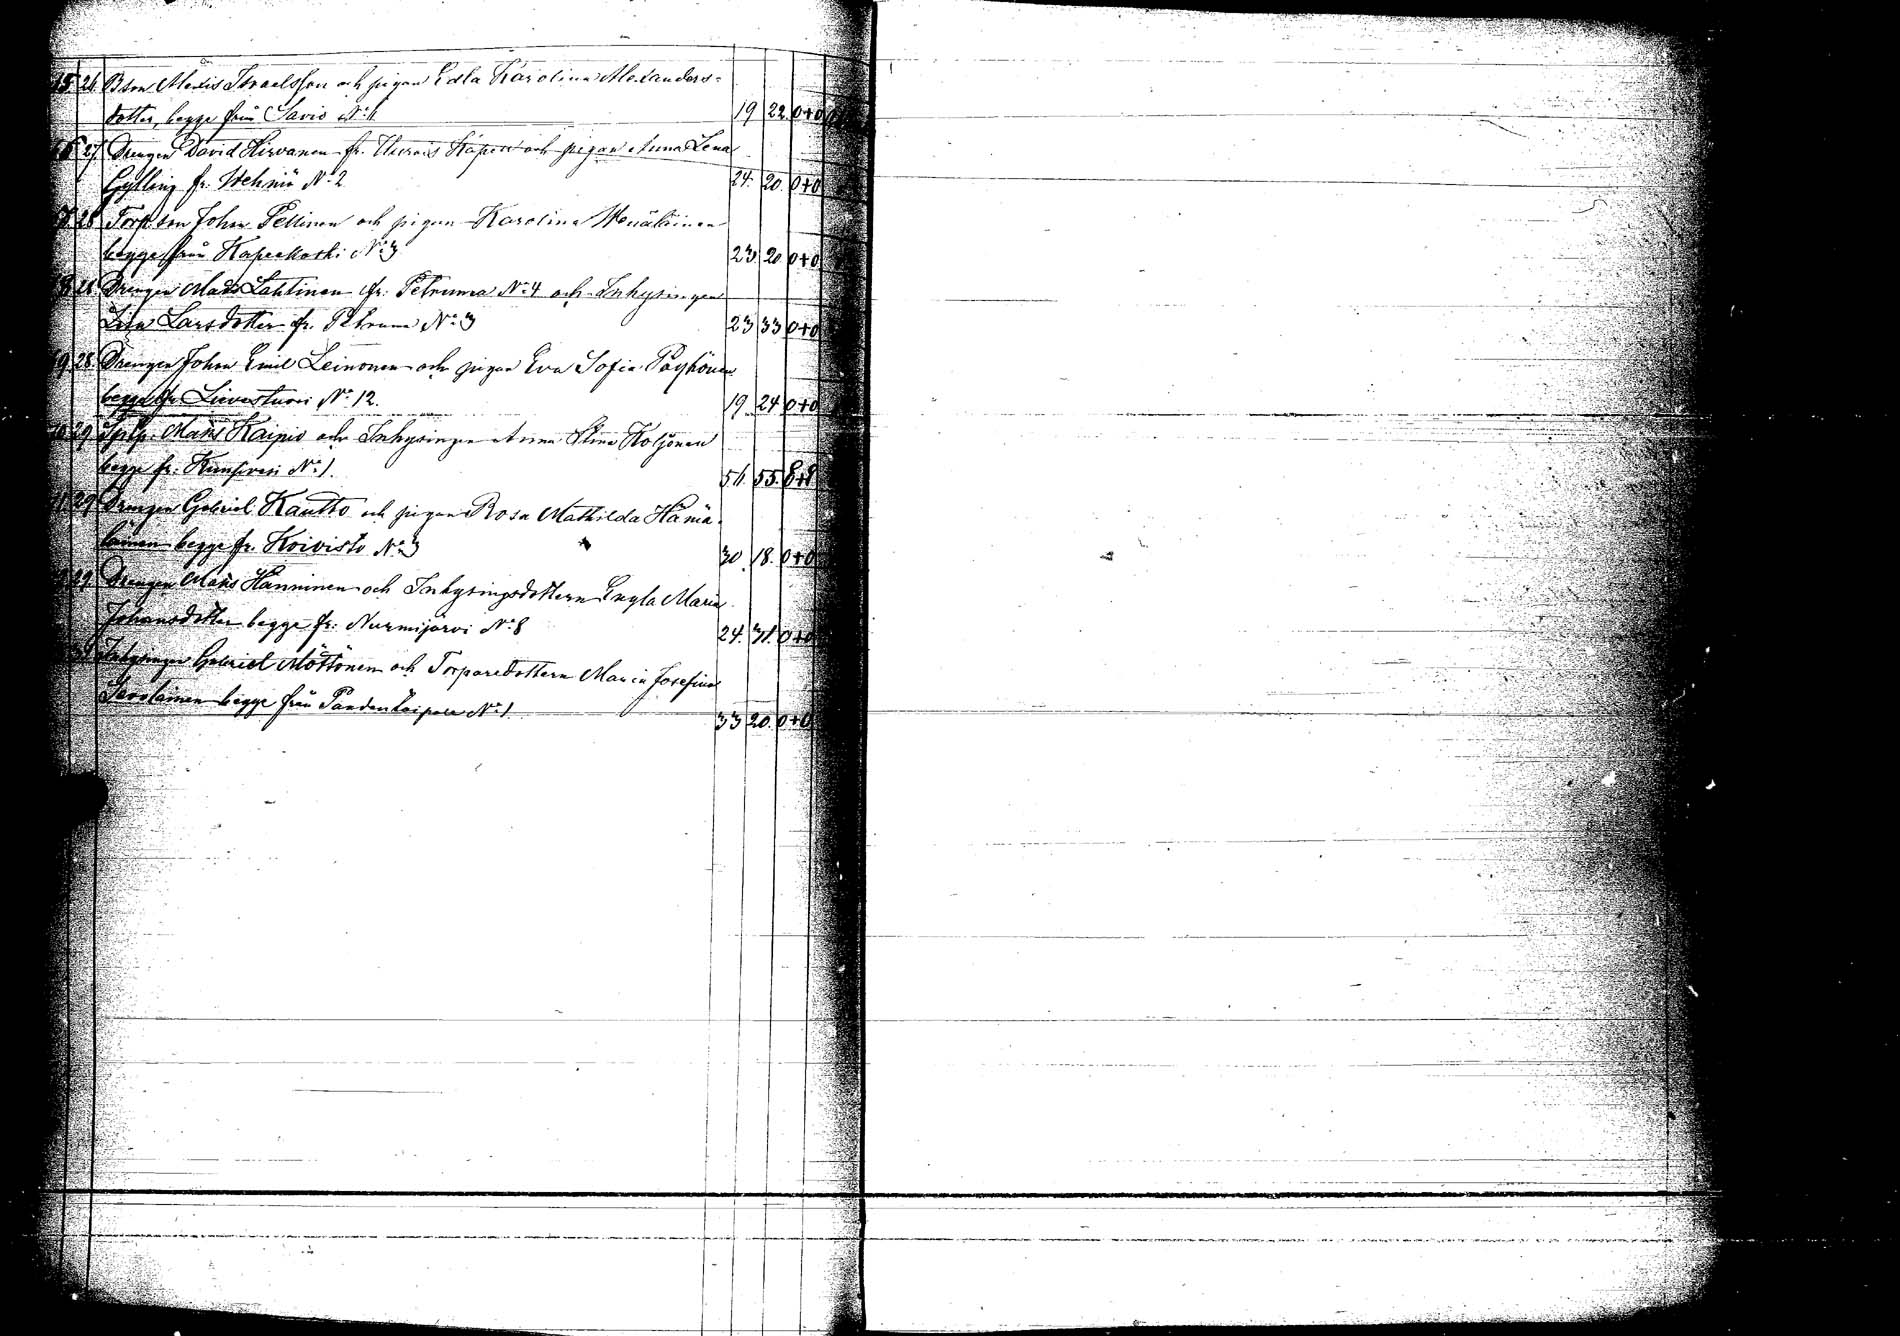 15 26 B.son Alexis Israelsson och pigan Edla Karolina Alexanders-
dotter, begge från Savio N:o 19 22 0+0
27 Drengen David Hirvonen fr. och pigan Anna Lena
Gylling fr. Wehniä N:o 2 24. 20. 0+0
28 Torp.son Johan Pellinen och pigan Karolina Wenäläinen
begge från Kapeekoski N:o 3 23. 20 0+0
28. Drengen Mats Lahtinen fr. Petruma N:o 4 och Inhysingen
Lisa Larsdotter fr. Petruma N:o 3 23 33 0+0
28. Drengen Johan Emil Leinonen och pigan Eva Sofia Pöyhönen
begge fr. Lievestuori N:o 12. 19 24 0+0
29 Mats Kaipio och Inhysingen Anna Stina Koljonen
begge fr. N:o 1. 51. 55.
29 Drengen Gabriel Kautto och pigan Rosa Mathilda Hämä-
läinen begge fr. Koivisto N:o 3 30. 18. 0+0
29 Drengen Mats Hänninen och Inhysingsdottern Maria
Johansdotter begge fr. Nurmijärvi N:o 8 24. 31. 0+0
Inhysingen Gabriel Möttönen och Torparedottern Maria Josefina
Savolainen begge från N:o 1 33 20. 0+0